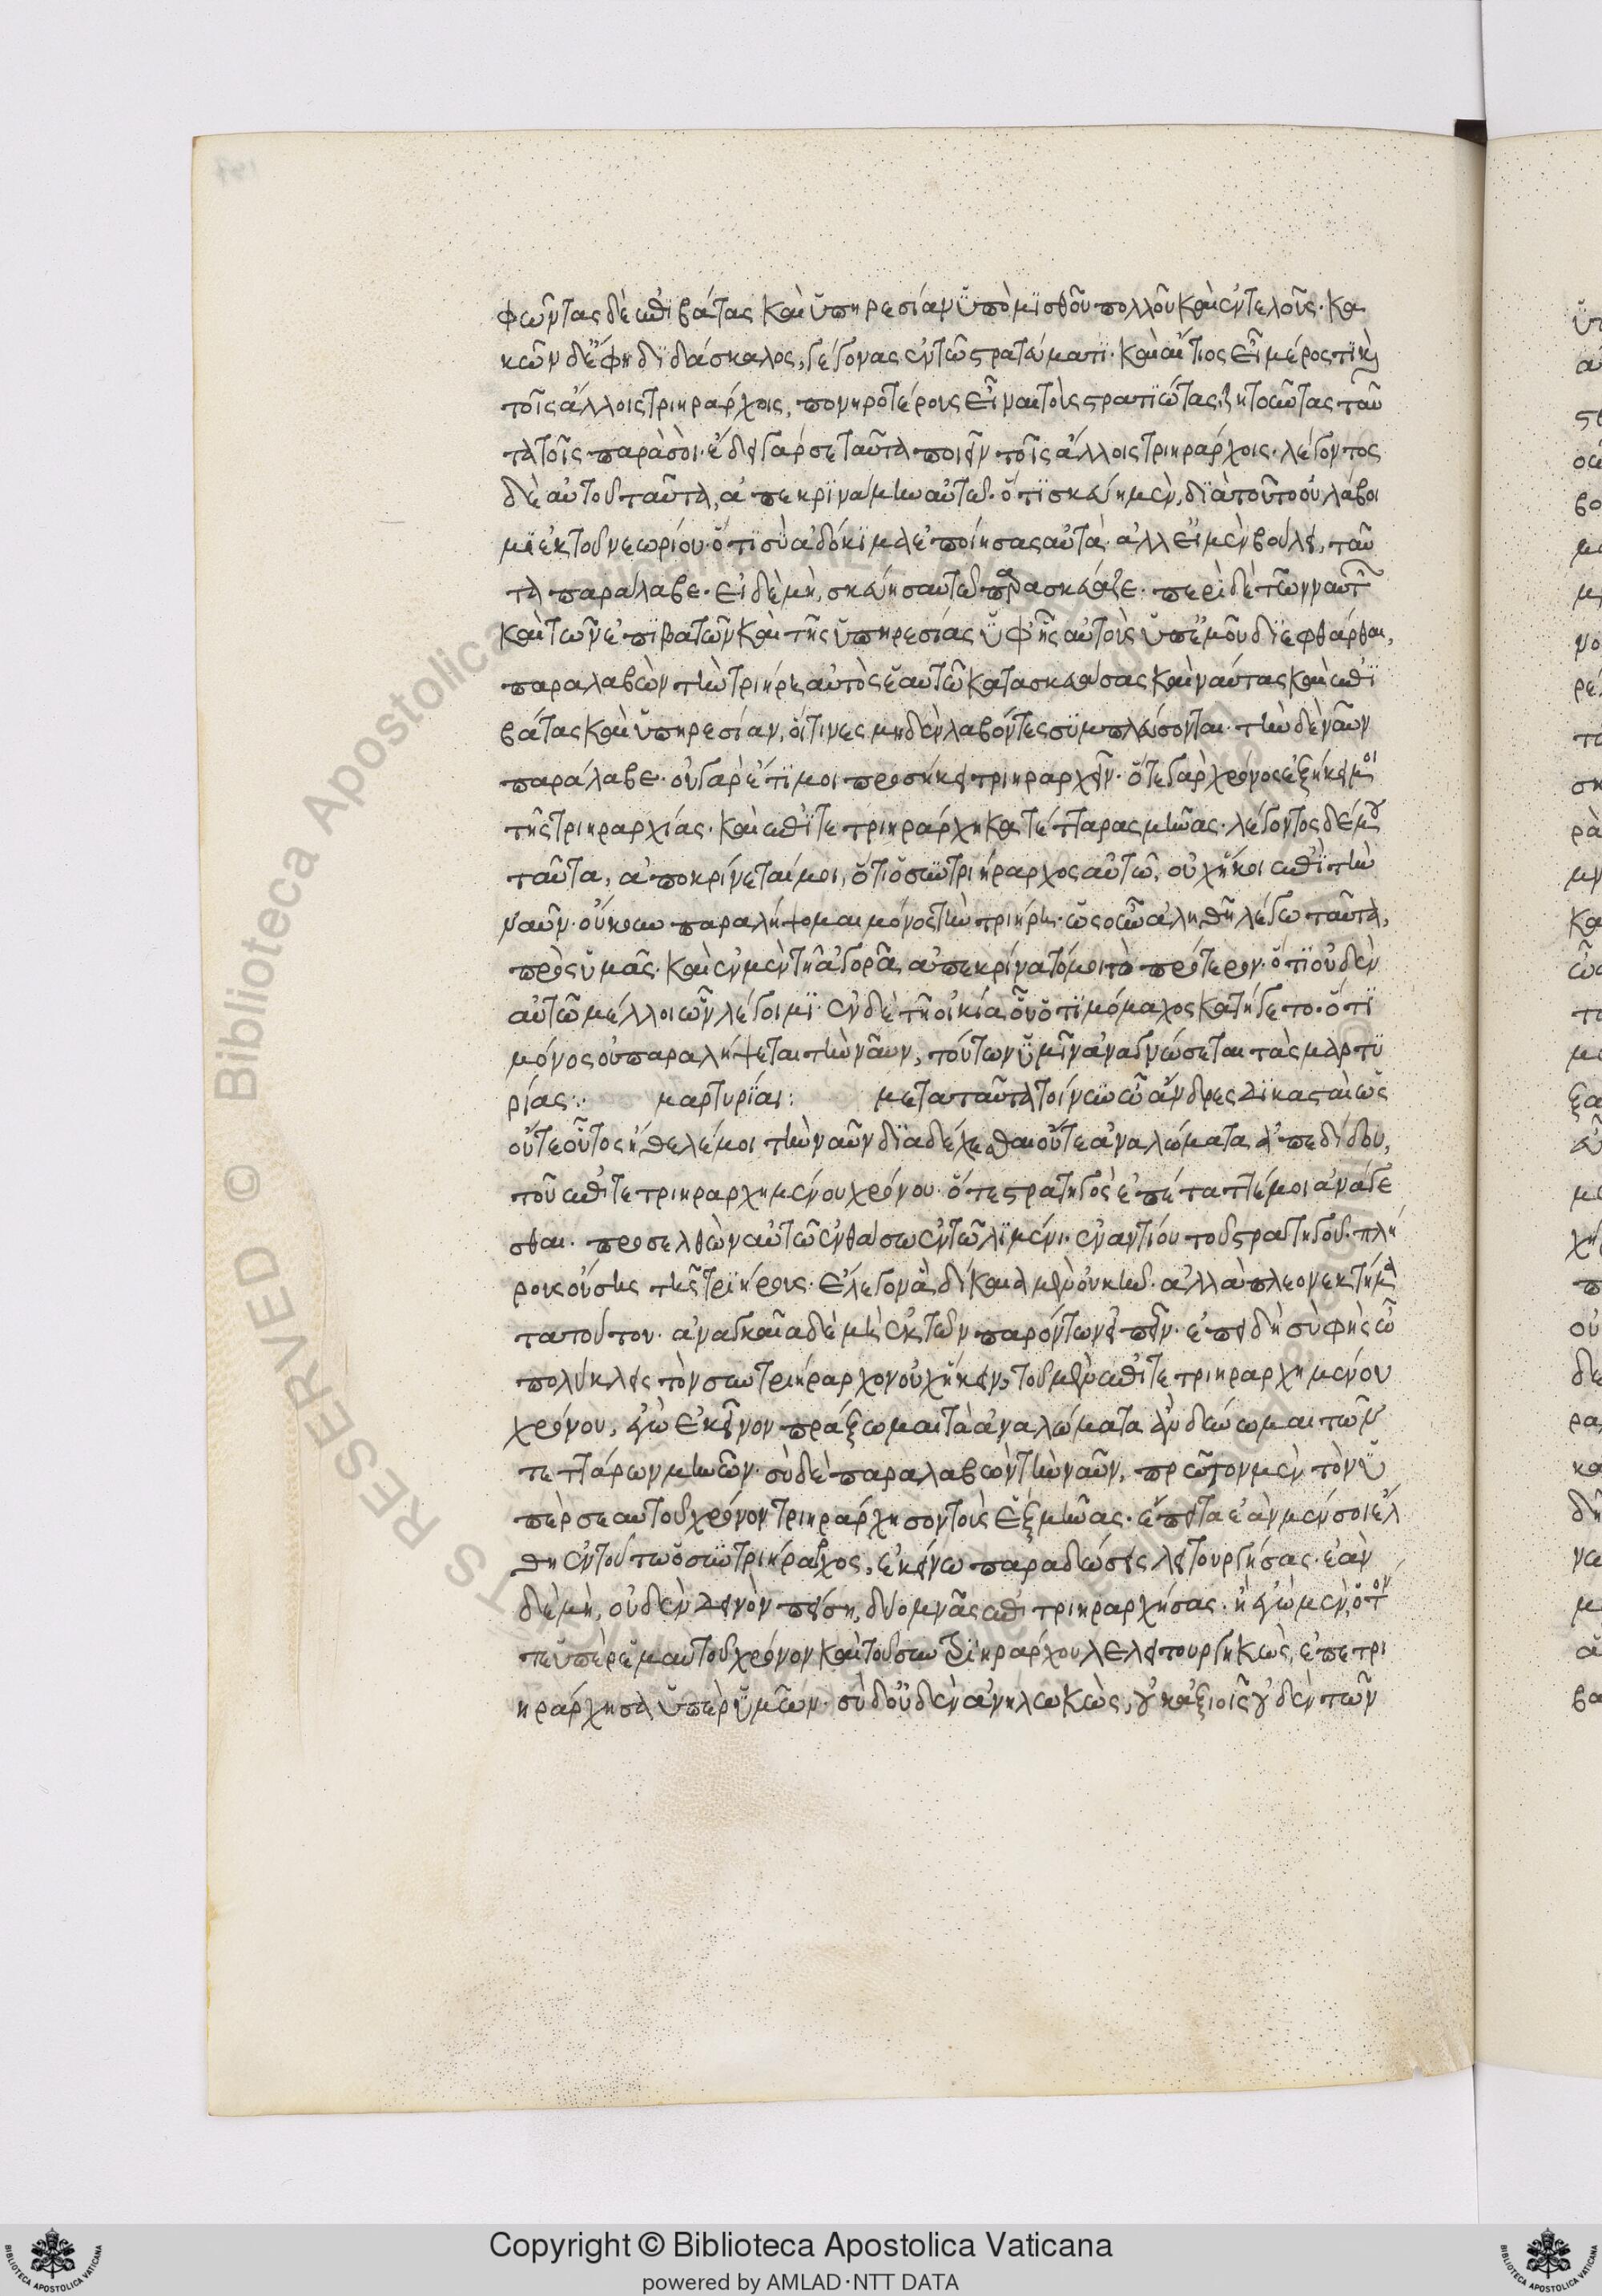 φῶντας δὲ ἐπιβάτας καὶ ὑπηρεσίαν ὑπὸ μισθοῦ πολλοῦ καὶ ἐντελοῦς· κα
κῶν δ' ἔφη διδάσκαλος, γέγονας ἐν τῶ στρατεύματι· καὶ αἴτιος εἶ μέρος τι καὶ
τοῖς ἄλλοις τριηράρχοις, πονηροτέρους εἶναι τοὺς στρατιώτας ζητοῦντας ταῦ
τα τοῖς παρὰ σοί· ἔδει γάρ σε ταῦτα ποιεῖν τοῖς ἄλλοις τριηράρχοις· λέγοντος
δὲ αὐτοῦ ταῦτα, ἀπεκρινάμην αὐτῶ· ὅτι σκεύη μὲν, διὰ τοῦτο οὐ λάβοι
μι ἐκ τοῦ νεωρίου· ὅτι σὺ ἀδόκιμα ἐποίησας αὐτά· ἀλλ' εἰ μὲν βούλει, ταῦ
τα παράλαβε· εἰ δὲ μὴ, σκεύη σαυτῶ παρασκεύαζε· περὶ δὲ τῶν ναυτῶν
καὶ τῶν ἐπιβατῶν καὶ τῆς ὑπηρεσίας εἰ φῂς αὐτοὺς ὑπ' ἐμοῦ διεφθάρθαι,
παραλαβὼν τὴν τριήρη αὐτὸς ἑαυτῶ κατασκεύασαι καὶ ναύτας καὶ ἐπι
βάτας καὶ ὑπηρεσίαν, οἵτινες μηδὲν λαβόντες συμπλεύσονται· τὴν δὲ ναῦν
παράλαβε· οὐ γὰρ ἔτι μοι προσήκει τριηραρχεῖν· ὅ τε γὰρ χρόνος ἐξήκει μοι
τῆς τριηραρχίας· καὶ ἐπιτετριηράρχηκα τέτταρας μῆνας· λέγοντος δέ μου
ταῦτα, ἀποκρίνεταί μοι, ὅτι ὁ συντριήραρχος αὐτῶ, οὐχ ἥκοι ἐπὶ τὴν
ναῦν· οὔκουν παραλήψομαι μόνος τὴν τριήρη· ὡς οὖν ἀληθῆ λέγω ταῦτα,
πρὸς ὑμᾶς· καὶ ἐν μὲν τῆ ἀγορᾶ ἀπεκρίνατό μοι τὸ πρότερον· ὅτι οὐδὲν
αὐτῶ μέλλοι ὧν λέγοιμι· ἐν δὲ τῆ οἰκία οὗ ὁ τιμόμαχος κατήγετο· ὅτι
μόνος οὐ παραλήψεται τὴν ναῦν, τούτων ὑμῖν ἀναγνώσεται τὰς μαρτυ
ρίας: μαρτυρίαι: μετὰ ταῦτα τοίνυν ὦ ἄνδρες δικασταὶ ὡς
οὔτε οὗτος ἤθελέ μοι τὴν ναῦν διαδέχεσθαι οὔτε ἀναλώματα ἀπεδίδου,
τοῦ ἐπιτετριηραρχημένου χρόνου· ὅ τε στρατηγὸς ἐπέταττέ μοι ἀνάγε
σθαι· προσελθὼν αὐτῶ ἐν θάσω ἐν τῶ λιμένι· ἐναντίον τοῦ στρατηγοῦ· πλή
ρους οὔσης τῆς τριήρους· ἔλεγον ἃ δίκαια μὲν οὐκ ἦν· ἀλλὰ πλεονεκτήμα
τα τούτου· ἀναγκαῖα δέ μοι ἐκ τῶν παρόντων εἰπεῖν· ἐπειδὴ σὺ φὴς ὦ
πολύκλεις τὸν συντριήραρχον οὐχ ἥκειν, τοῦ μὲν ἐπιτετριηραρχημένου
χρόνου, ἐγὼ ἐκεῖνον πράξομαι τὰ ἀναλώματα ἐὰν δύνωμαι τῶν
τεττάρων μηνῶν· σὺ δὲ παραλαβὼν τὴν ναῦν, πρῶτον μὲν τὸν ὑ
πὲρ σεαυτοῦ χρόνον τριηράρχησον τοὺς ἓξ μῆνας· ἔπειτα ἐὰν μέν σοι ἔλ
θη ἐν τούτω ὁ συντριήραρχος, ἐκείνω παραδώσεις λειτουργήσας· ἐὰν
δὲ μὴ, οὐδὲν δεινὸν πείση, δύο μῆνας ἐπιτριηραρχήσας· ἢ ἐγὼ μὲν, ὅ τόν
τε ὑπὲρ ἐμαυτοῦ χρόνον καὶ τοῦ συντριηράρχου λελειτουργηκὼς, ἐπετρι
ηράρχησα ὑπὲρ ὑμῶν· σὺ δ' οὐδὲν ἀνηλωκὼς, οὐκ ἀξιοῖς οὐδὲ τὴν
Copyright © Biblioteca Apostolica Vaticana
powered by AMLAD·NTT DATA